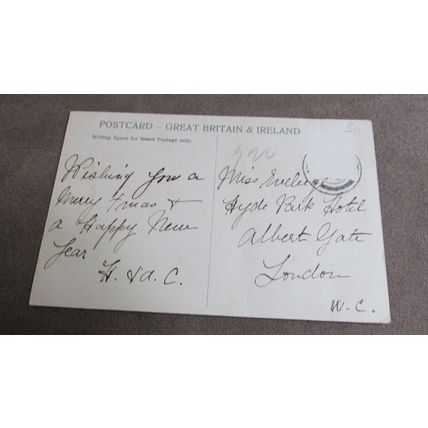 POSTCARD – GREAT BRITAIN & IRELAND
Writing Space for Inland Postage only.
Wishing you a
Merry Xmas &
a Happy New
Year
H. & A. C.
Miss
Hyde Park Hotel
Albert Gate
London
W. C.